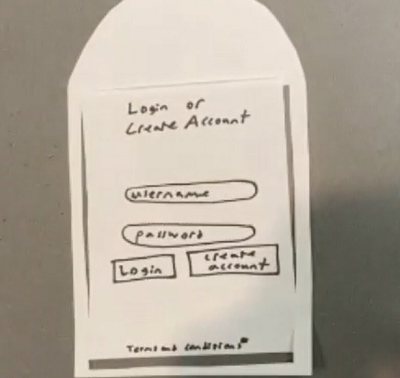 Login or
Create Account
username
password
Login
create
account
Terms and conditions